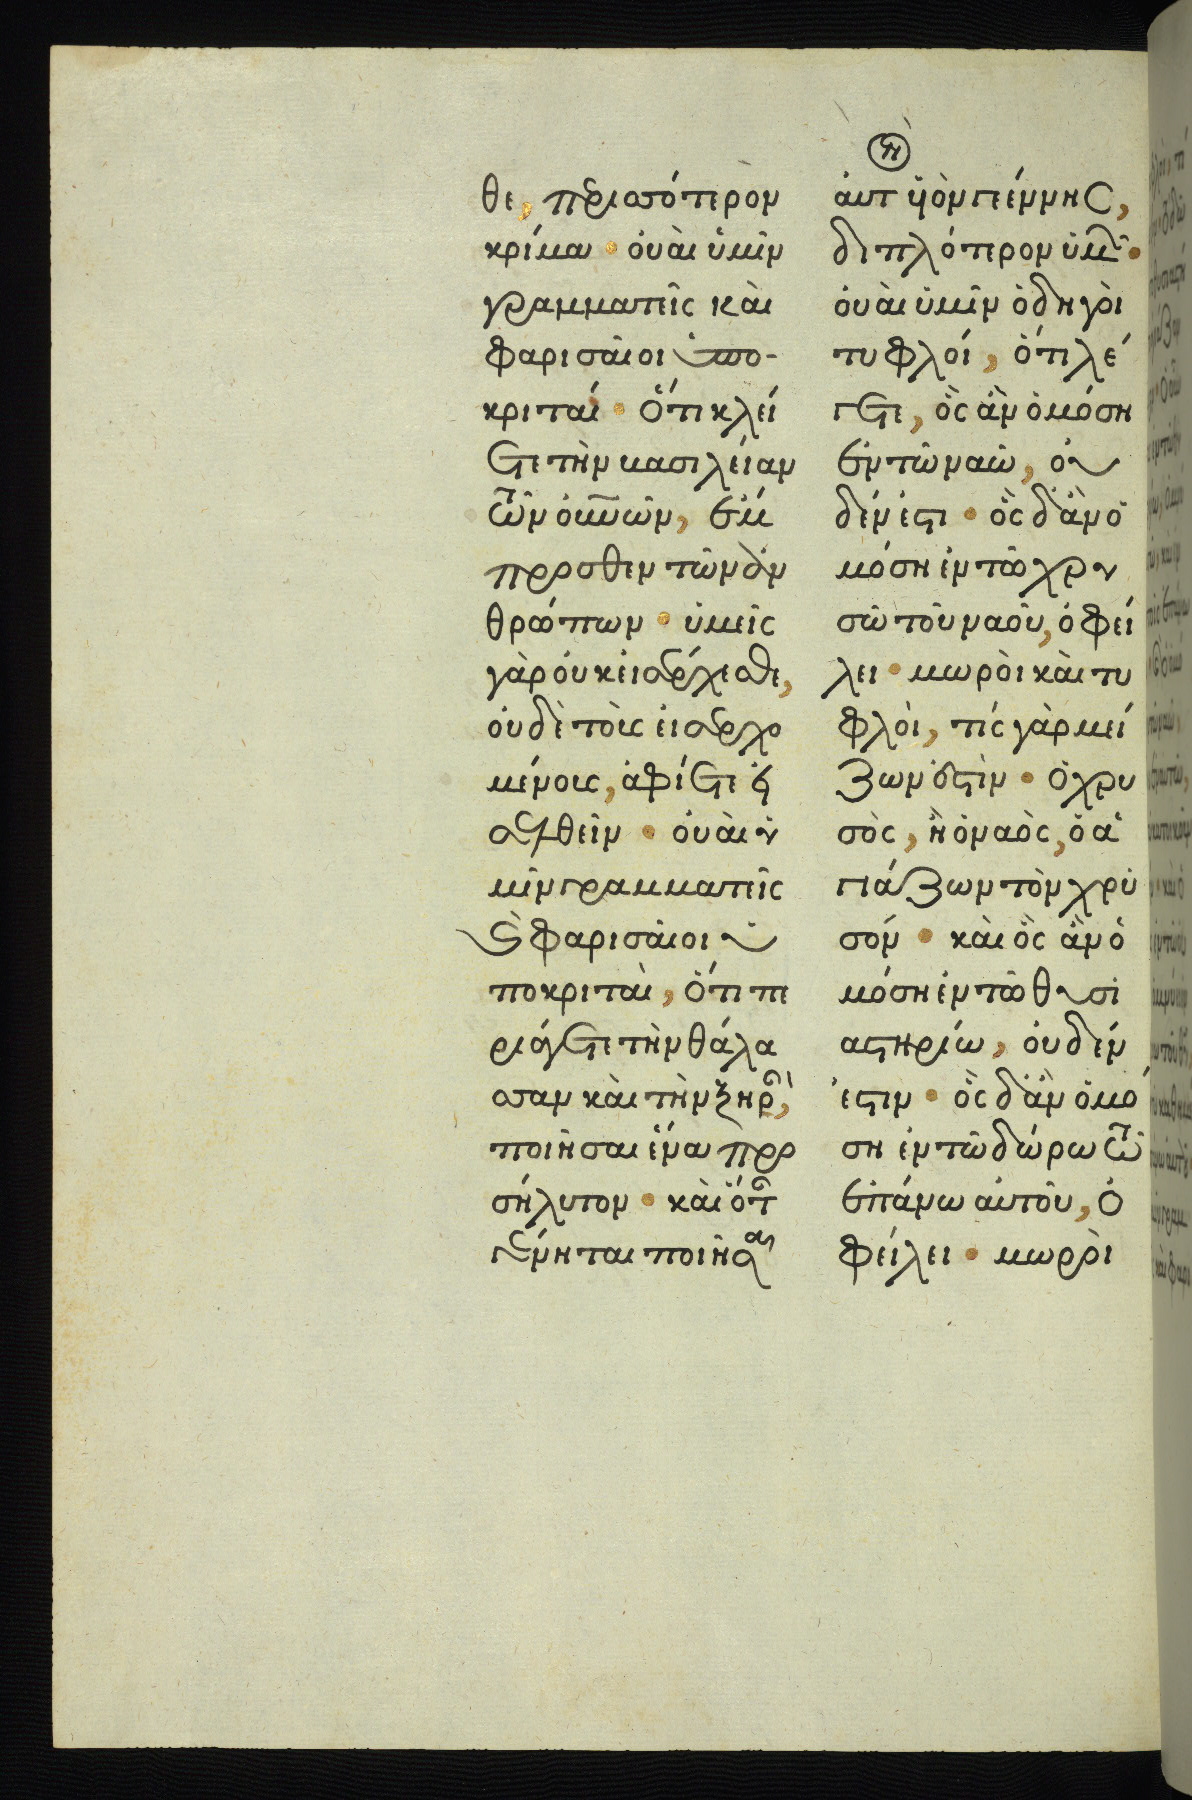 η
θε, περισσότερον
κρίμα · ὀυὰι ὑμῖν
γραμματεῖς κὰι
φαρισᾶιοι ὑπο-
κριταί · ὅτι κλεί
ετε τὴν βασιλείαν
τῶν οὐνῶν, ἐμ
προσθεν τῶν ἀν
θρώπων · ὑμεῖς
γὰρ ὀυκ ἐισέρχεσθε,
ὀυδὲ τοὺς ἐισερχο
μένους, ἀφίετε ἐι
σελθεῖν · ὀυὰι ὑ
μῖν γραμματεῖς
κ φαρισᾶιοι ὑ
ποκριταὶ, ὅτι πε
ριάγετε τὴν θάλα
σσαν κὰι τὴν ξηρὰν,
ποιῆσαι ἕνα προ
σήλυτον · κὰι ὅτ
γένηται ποιῆσαι
ἀυτ ὑὸν γεέννης,
διπλότερον ὑμῶν ·
ὀυὰι ὑμῖν ὁδηγὸι
τυφλοί, ὅτι λέ
γετε, ὃς ἂν ὀμόση
ἐν τῶ ναῶ, ὀυ
δέν ἐστι · ὃς δ' ἂν ὀ
μόση ἐν τῶ χρυ
σῶ τοῦ ναοῦ, ὀφεί
λει · μωρὸι κὰι τυ
φλὸι, τίς γὰρ μεί
ζων ἐστὶν · ὁ χρυ
σὸς, ἢ ὁ ναὸς, ὁ ἁ
γιάζων τὸν χρυ
σόν · κὰι ὃς ἂν ὀ
μόση ἐν τῶ θυσι
αστηρίω, ὀυδέν
ἐστιν · ὃς δ' ἂν ὀμό
ση ἐν τῶ δώρω τῶ
ἐπάνω ἀυτοῦ, ὀ
φείλει · μωρὸι